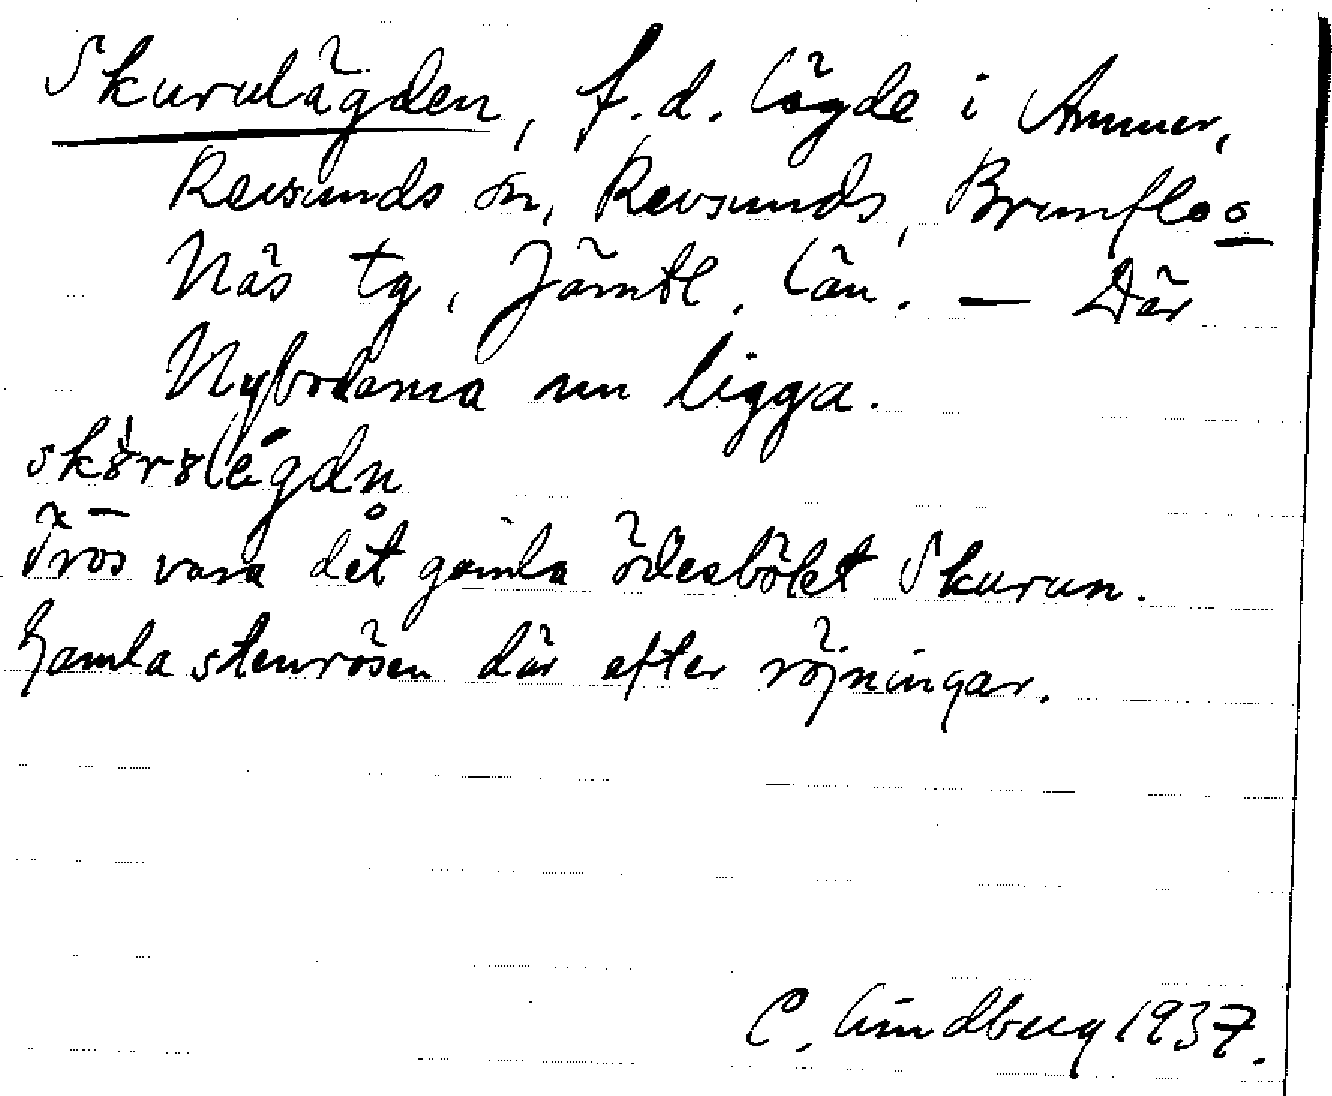 Skurulägden, f.d. lägde i Ammer,
Revsunds sn, Revsunds, Brunflo o
Näs tg, Jämtl. län. — Där
Nybodarna nu ligga.
Tros vara det gamla ödesbölet Skurun.
Gamla stenrösen där efter röjningar.
C. Lindberg 1937.